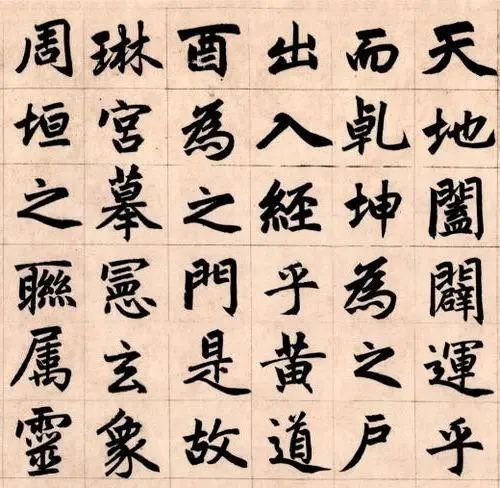 天地闔闢運乎
而乹坤為之戶
出入經乎黃道
酉為之門是故
琳宮摹憲玄象
周垣之聯属靈